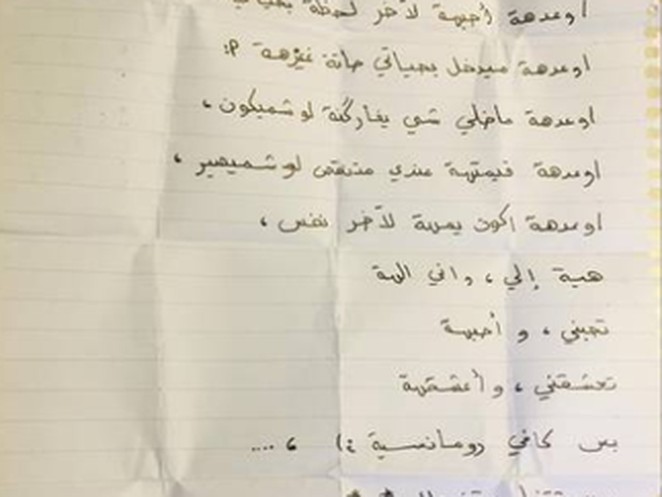 اوعدهة أحبهة لآخر لحظة بحياتي
اوعدهة ميدخل بحياتي حاتة غيرهة :P
اوعدهة ماخلي شي يفاركنة لو شميكون ،
اوعدهة قيمتهة عندي متنقص لو شميصير ،
اوعدهة اكون يمهة لآخر نفس ،
هية إلي ، واني الهة
تحبني ، و أحبهة
تعشقني ، و أعشقهة
بس كافي رومانسية :) ، ....